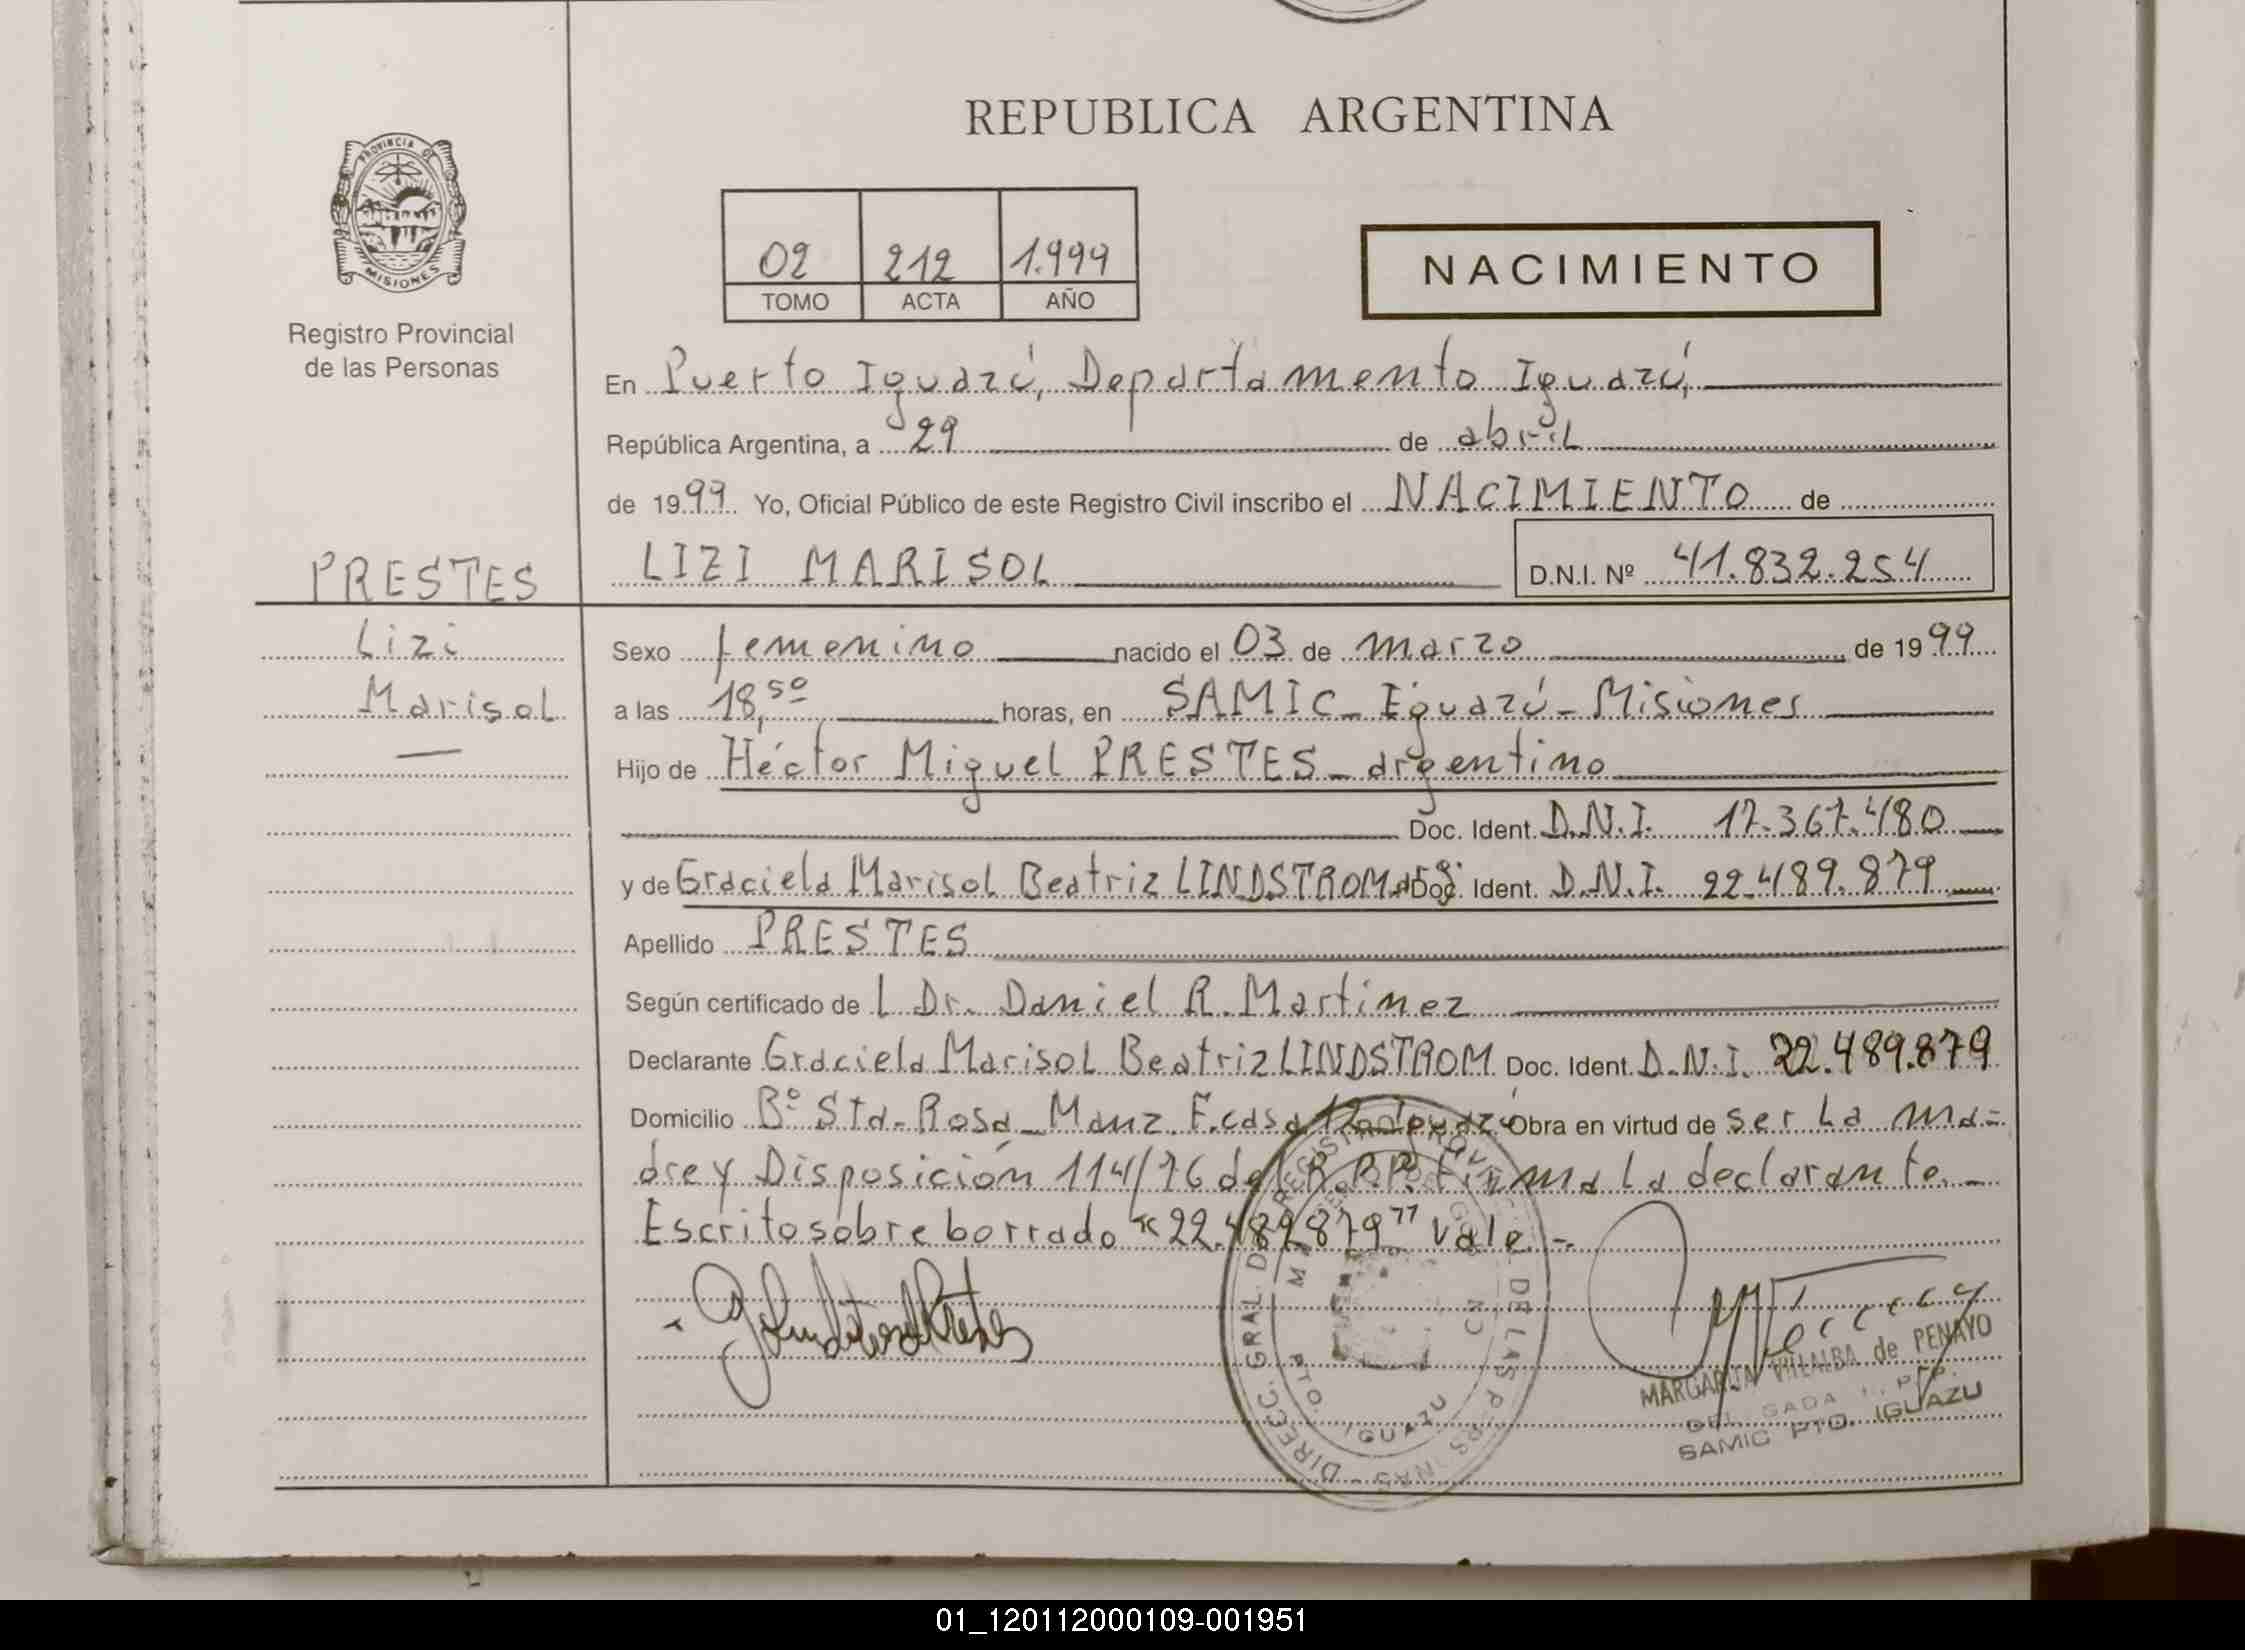 REPUBLICA ARGENTINA
PROVINCIA DE
MISIONES
Registro Provincial
de las Personas
02 212 1.999
TOMO ACTA AÑO
NACIMIENTO
En Puerto Iguazú, Departamento Iguazú,
República Argentina, a 29 de abril
de 1999 Yo, Oficial Público de este Registro Civil inscribo el NACIMIENTO de
PRESTES
LIZI MARISOL D.N.I. Nº 41.832.254
Lizi
Marisol
Sexo femenino nacido el 03 de marzo de 1999
a las 18,50 horas, en SAMIC_ Iguazú_ Misiones
Hijo de Héctor Miguel PRESTES_ argentino
Doc. Ident. D.N.I. 17.367.480
y de Graciela Marisol Beatriz LINDSTROM Doc. Ident. D.N.I. 22.489.879
Apellido PRESTES
Según certificado de l Dr. Daniel R. Martinez
Declarante Graciela Marisol Beatriz LINDSTROM Doc. Ident. D.N.I. 22.489.879
Domicilio Bº Sta. Rosa_ Manz. F. casa 12 Iguazú Obra en virtud de ser la ma=
dre y Disposición 114/76 del R.P.P. Firma la declarante._
Escrito sobre borrado "22.489.879" Vale.-
DIREC. GRAL DEL REGISTRO PROV. DE LAS PERSONAS
PTO. IGUAZU
MARGARITA VILLALBA de PENAYO
DELEGADA R.P.P.
SAMIC PTO. IGUAZU
01_120112000109-001951